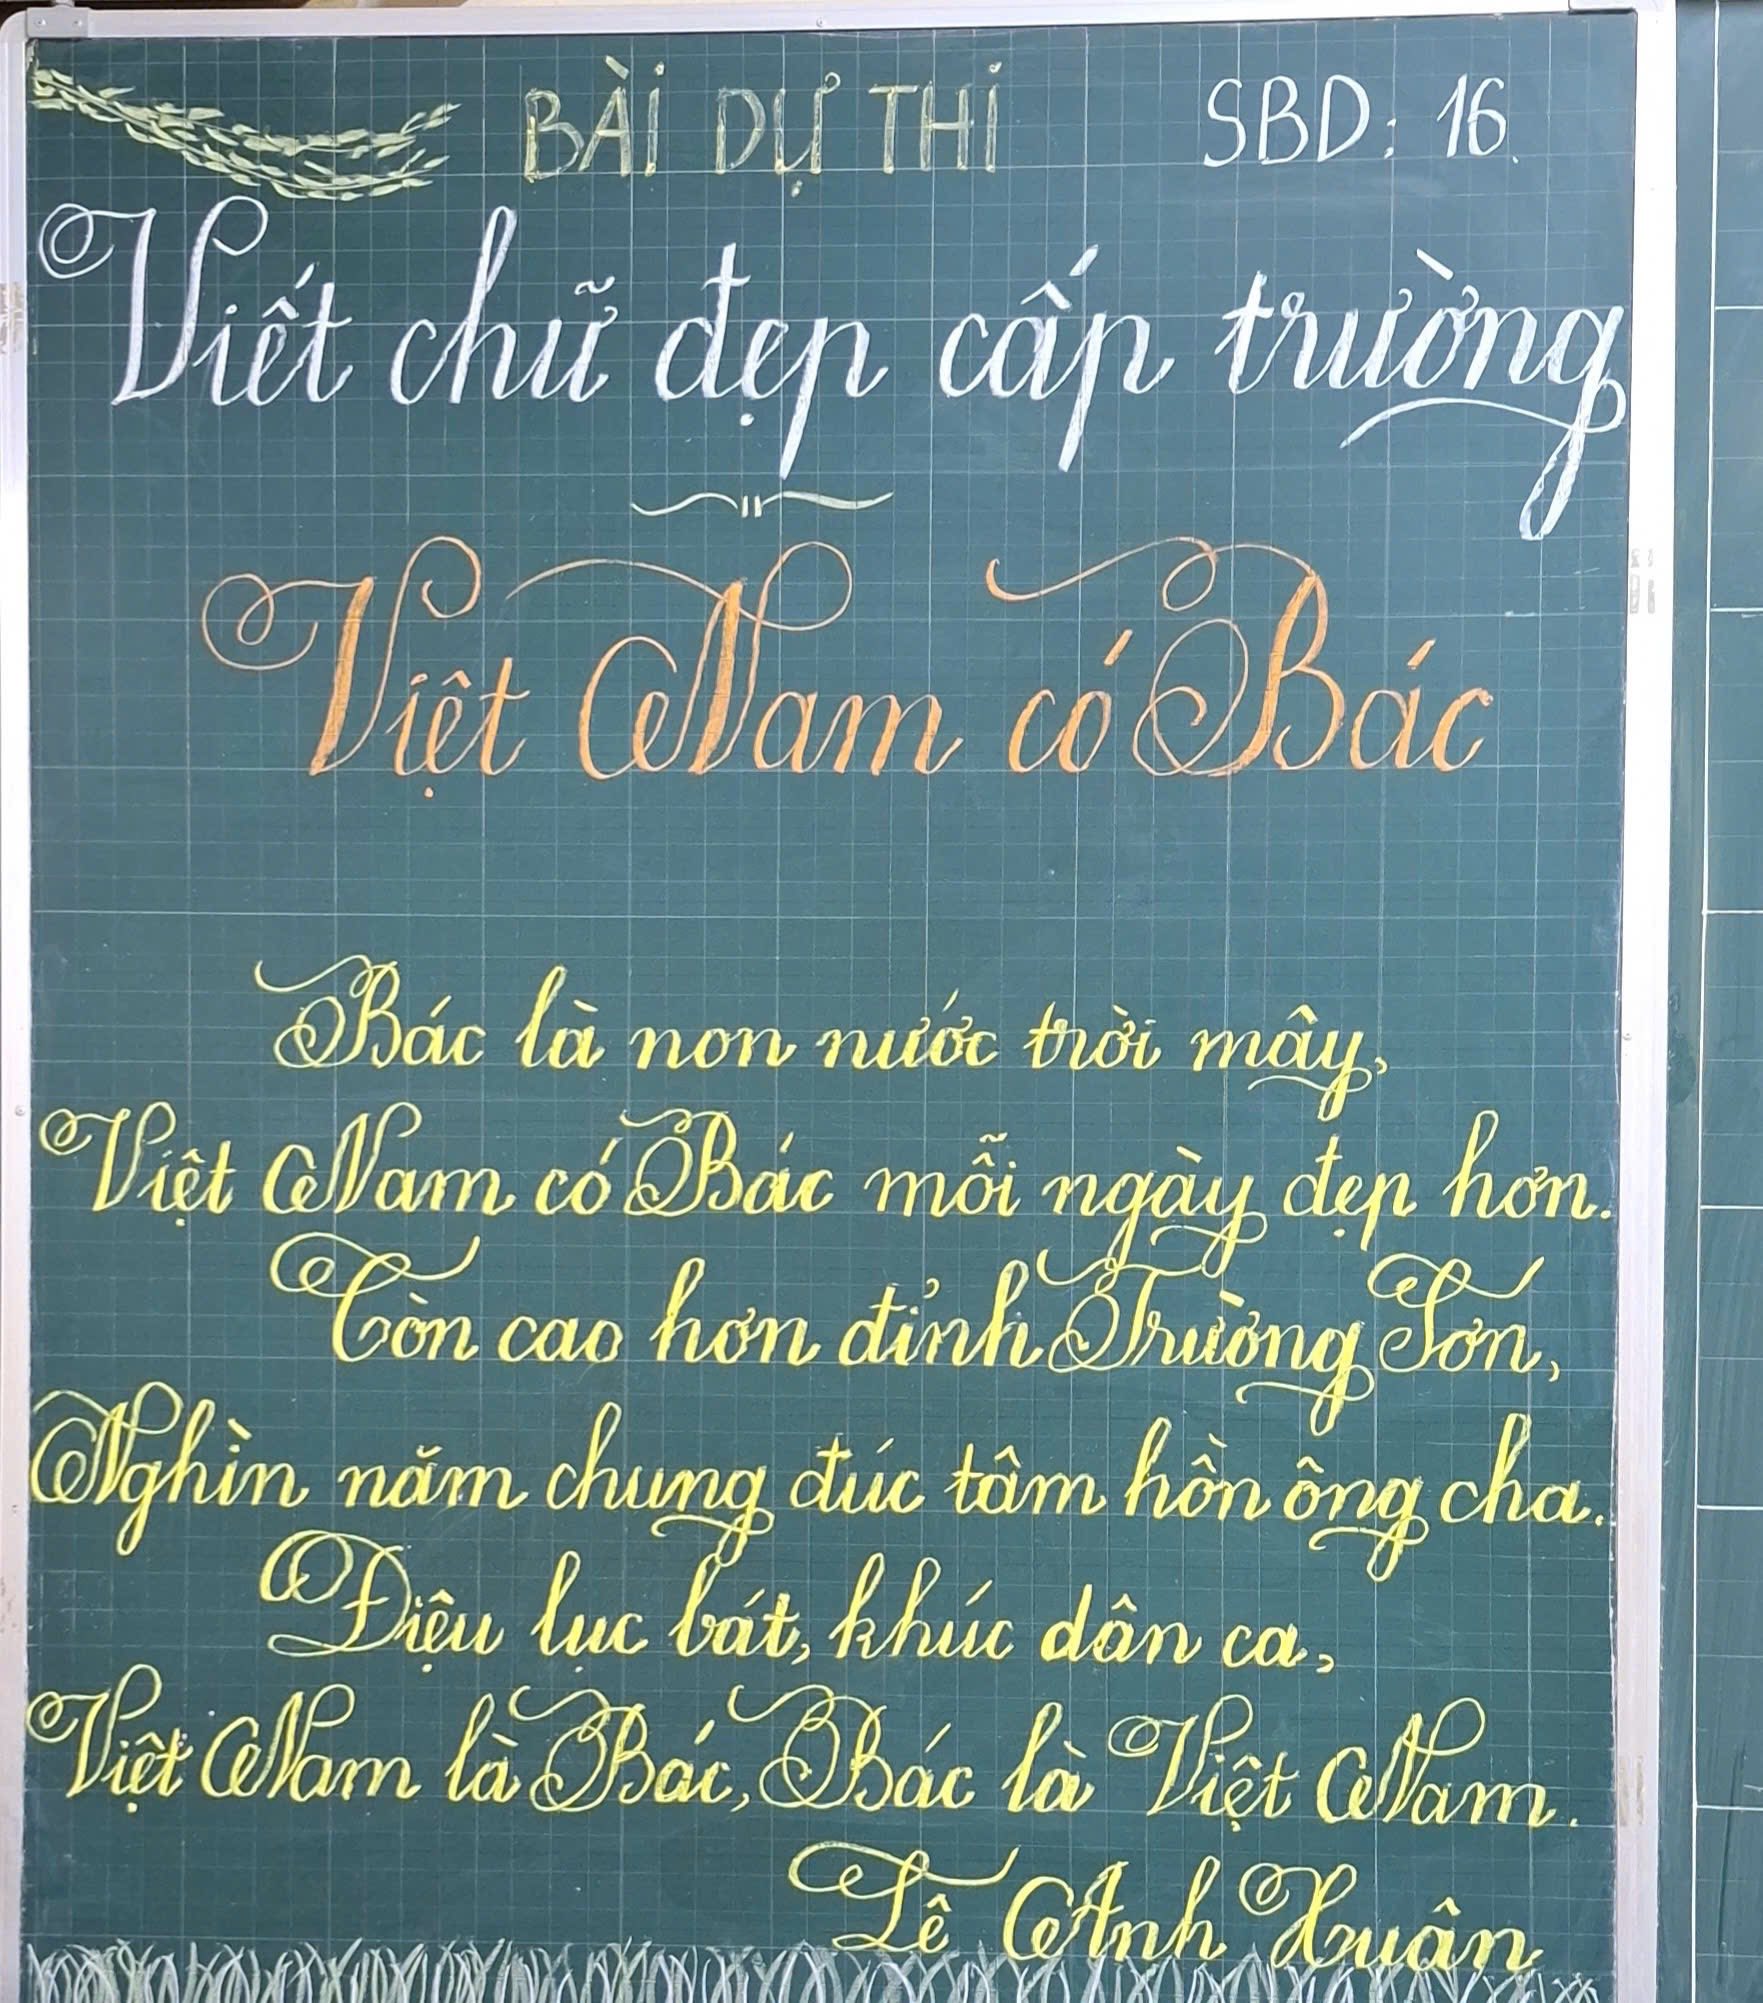 BÀI DỰ THI SBD: 16.
Viết chữ đẹp cấp trường
Việt Nam có Bác
Bác là non nước trời mây,
Việt Nam có Bác mỗi ngày đẹp hơn.
Còn cao hơn đỉnh Trường Sơn,
Nghìn năm chung đúc tâm hồn ông cha.
Điệu lục bát, khúc dân ca,
Việt Nam là Bác, Bác là Việt Nam.
Lê Anh Xuân